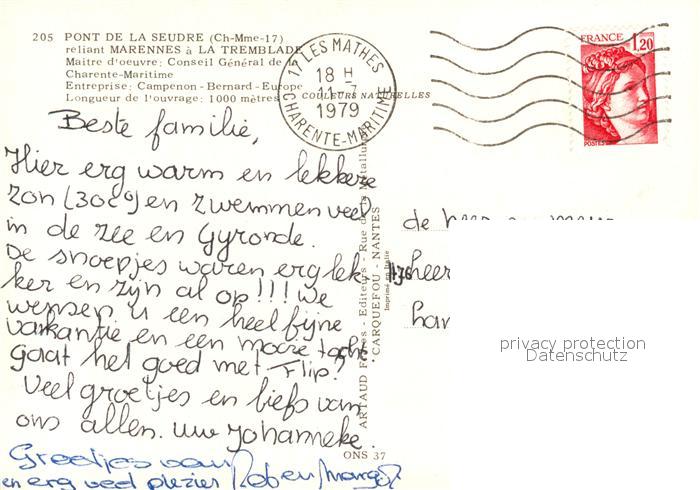 205 PONT DE LA SEUDRE (Ch-Mme-17)
reliant MARENNES à LA TREMBLADE
Maitre d'oeuvre: Conseil Général de la
Charente-Maritime
Entreprise: Campenon-Bernard-Europe
Longueur de l'ouvrage: 1000 mètres
COULEURS NATURELLES
17 LES MATHES
18 H
11-7
1979
CHARENTE-MARITIME
FRANCE 1,20
POSTES
Beste familie,
Hier erg warm en lekkere
zon (30c°) en zwemmen veel
in de zee en Gyronde.
De snoepjes waren erg lek-
ker en zijn al op!!! We
wensen u een heel fijne
vakantie en een mooie tocht
Gaat het goed met Flip?
Veel groetjes en liefs van
ons allen. uw Johanneke.
Groetjes van Rob en
en erg veel plezier
ARTAUD Frères - Editeurs - Rue de la Métallurgie
CARQUEFOU - NANTES
Imprimé en Italie
ONS 37
de
heer
privacy protection
Datenschutz